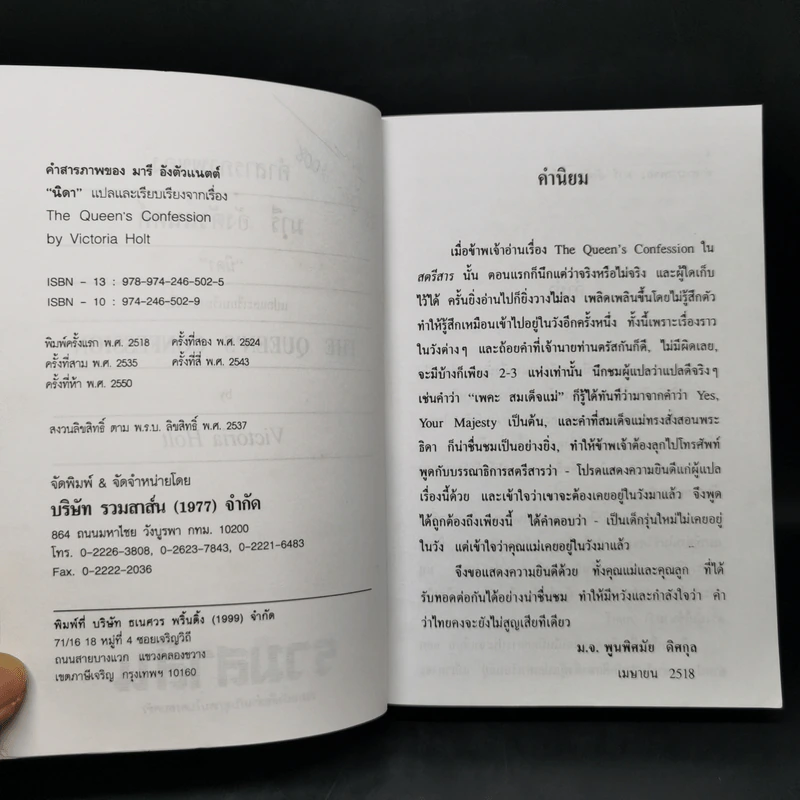 คำสารภาพของ มารี อังตัวแนตต์
"นิดา" แปลและเรียบเรียงจากเรื่อง
The Queen's Confession
by Victoria Holt
ISBN - 13 : 978-974-246-502-5
ISBN - 10 : 974-246-502-9
พิมพ์ครั้งแรก พ.ศ. 2518 ครั้งที่สอง พ.ศ. 2524
ครั้งที่สาม พ.ศ. 2535 ครั้งที่สี่ พ.ศ. 2543
ครั้งที่ห้า พ.ศ. 2550
สงวนลิขสิทธิ์ ตาม พ.ร.บ. ลิขสิทธิ์ พ.ศ. 2537
จัดพิมพ์ & จัดจำหน่ายโดย
บริษัท รวมสาส์น (1977) จำกัด
864 ถนนมหาไชย วังบูรพา กทม. 10200
โทร. 0-2226-3808, 0-2623-7843, 0-2221-6483
Fax. 0-2222-2036
พิมพ์ที่ บริษัท ธเนศวร พริ้นติ้ง (1999) จำกัด
71/16 18 หมู่ที่ 4 ซอยเจริญวิถี
ถนนสายบางแวก แขวงคลองขวาง
เขตภาษีเจริญ กรุงเทพฯ 10160
คำนิยม
เมื่อข้าพเจ้าอ่านเรื่อง The Queen's Confession ใน
สตรีสาร นั้น ตอนแรกก็นึกแต่ว่าจริงหรือไม่จริง และผู้ใดเก็บ
ไว้ได้ ครั้นยิ่งอ่านไปก็ยิ่งวางไม่ลง เพลิดเพลินขึ้นโดยไม่รู้สึกตัว
ทำให้รู้สึกเหมือนเข้าไปอยู่ในวังอีกครั้งหนึ่ง ทั้งนี้เพราะเรื่องราว
ในวังต่างๆ และถ้อยคำที่เจ้านายท่านตรัสกันก็ดี, ไม่มีผิดเลย,
จะมีบ้างก็เพียง 2-3 แห่งเท่านั้น นึกชมผู้แปลว่าแปลดีจริงๆ
เช่นคำว่า "เพคะ สมเด็จแม่" ก็รู้ได้ทันทีว่ามาจากคำว่า Yes,
Your Majesty เป็นต้น, และคำที่สมเด็จแม่ทรงสั่งสอนพระ
ธิดา ก็น่าชื่นชมเป็นอย่างยิ่ง, ทำให้ข้าพเจ้าต้องลุกไปโทรศัพท์
พูดกับบรรณาธิการสตรีสารว่า - โปรดแสดงความยินดีแก่ผู้แปล
เรื่องนี้ด้วย และเข้าใจว่าเขาจะต้องเคยอยู่ในวังมาแล้ว จึงพูด
ได้ถูกต้องถึงเพียงนี้ ได้คำตอบว่า - เป็นเด็กรุ่นใหม่ไม่เคยอยู่
ในวัง แต่เข้าใจว่าคุณแม่เคยอยู่ในวังมาแล้ว
จึงขอแสดงความยินดีด้วย ทั้งคุณแม่และคุณลูก ที่ได้
รับทอดต่อกันได้อย่างน่าชื่นชม ทำให้มีหวังและกำลังใจว่า คำ
ว่าไทยคงจะยังไม่สูญเสียทีเดียว
ม.จ. พูนพิศมัย ดิศกุล
เมษายน 2518